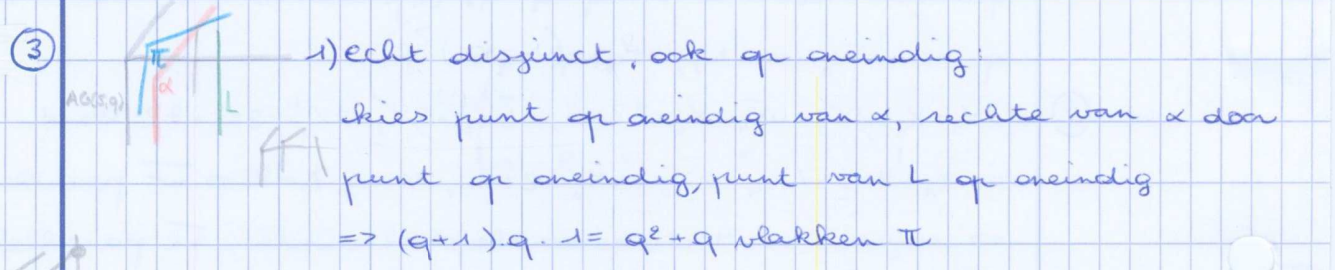 ③ 1) echt disjunct, ook op oneindig:
π
α
AG(5,q) L kies punt op oneindig van α, rechte van α door
punt op oneindig, punt van L op oneindig
=> (q+1).q.1 = q²+q vlakken π